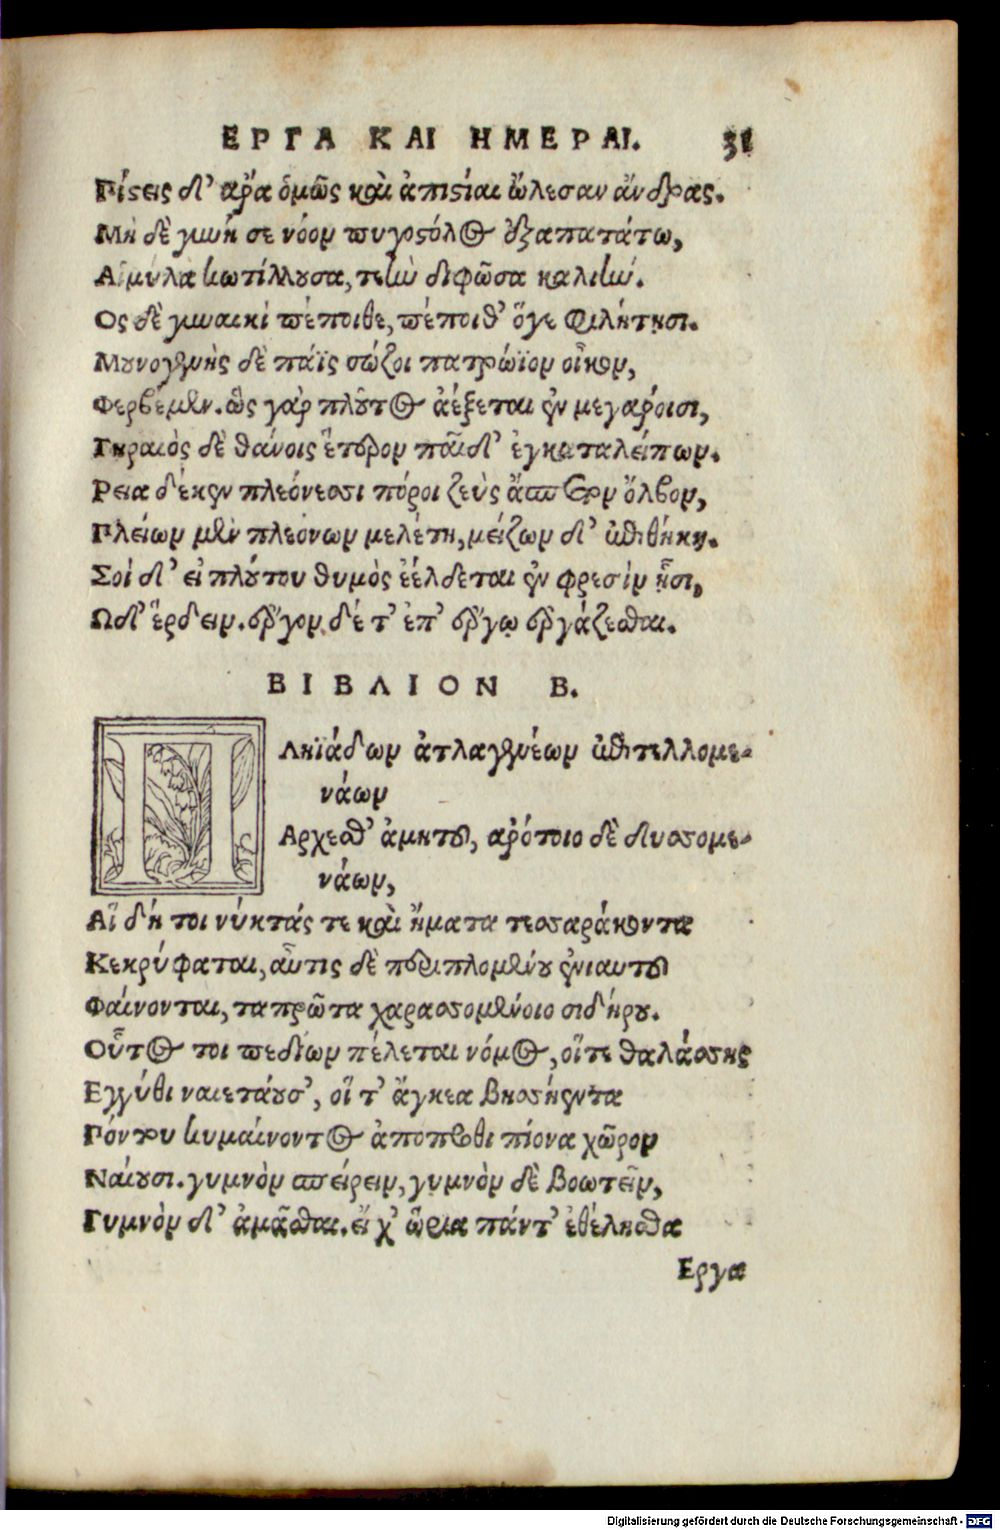 ΕΡΓΑ ΚΑΙ ΗΜΕΡΑΙ. 31
Πίστεις δ' ἄρα ὁμῶς καὶ ἀπιστίαι ὤλεσαν ἄνδρας.
Μὴ δὲ γυνή σε νόον πυγοστόλος ἐξαπατάτω,
Αἱμύλα κωτίλλουσα, τεὴν διφῶσα καλιήν.
Ος δὲ γυναικὶ πέποιθε, πέποιθ' ὅγε φιλήτῃσι.
Μουνογενὴς δὲ πάϊς σώζοι πατρώϊον οἶκον,
Φερβέμεν. ὣς γὰρ πλοῦτος ἀέξεται ἐν μεγάροισι,
Γηραιὸς δὲ θάνοις ἕτερον παῖδ' ἐγκαταλείπων.
Ρεῖα δέ κεν πλεόνεσσι πόροι ζεὺς ἄσπετον ὄλβον,
Πλείων μὲν πλεόνων μελέτη, μείζων δ' ἐπιθήκη.
Σοὶ δ' εἰ πλούτου θυμὸς ἐέλδεται ἐν φρεσὶν ᾗσι,
Ωδ' ἔρδειν. ἔργον δέ τ' ἐπ' ἔργῳ ἐργάζεσθαι.
ΒΙΒΛΙΟΝ Β.
ΠΛηϊάδων ἀτλαγενέων ἐπιτελλομε-
νάων
Αρχεσθ' ἀμητοῦ, ἀρότοιο δὲ δυσσομε-
νάων,
Αἳ δή τοι νύκτάς τε καὶ ἤματα τεσσαράκοντα
Κεκρύφαται, αὖτις δὲ περιπλομένου ἐνιαυτοῦ
Φαίνονται, ταπρῶτα χαρασσομένοιο σιδήρου.
Οὗτος τοι πεδίων πέλεται νόμος, οἵτε θαλάσσης
Εγγύθι ναιετάουσ', οἵ τ' ἄγκεα βησσήεντα
Πόντου κυμαίνοντος ἀποπρόθι πίονα χῶρον
Ναίουσι. γυμνὸν σπείρειν, γυμνὸν δὲ βοωτεῖν,
Γυμνὸν δ' ἀμᾶσθαι. εἴ χ' ὥρια πάντ' ἐθέλησθα
Εργα
Digitalisierung gefördert durch die Deutsche Forschungsgemeinschaft - DFG